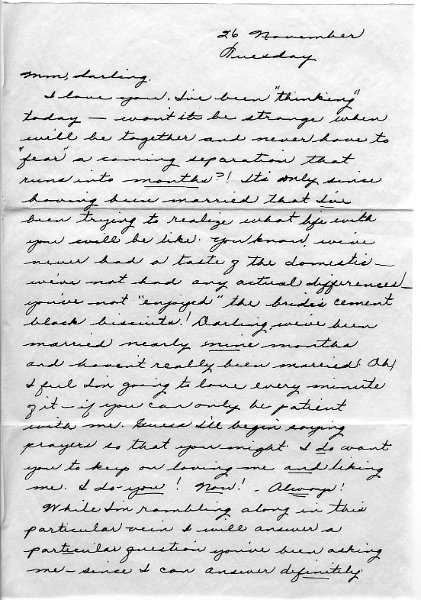 26 November
Tuesday
Mmm, darling.
I love you. I've been "thinking"
today — won't it be strange when
we'll be together and never have to
"fear" a coming separation that
runs into months?! It's only since
having been married that I've
been trying to realize what life with
you will be like. You know, we've
never had a taste of the domestic —
we've not had any actual differences! —
you've not "enjoyed" the bride's cement
block biscuits! Darling we've been
married nearly nine months
and haven't really been married! Oh!
I feel I'm going to love every minute
of it — if you can only be patient
with me. Guess I'll begin saying
prayers so that you might. I do want
you to keep on loving me and liking
me. I do you! Now! - Always!
While I'm rambling along in this
particular vein I will answer a
particular question you've been asking
me — since I can answer definitely